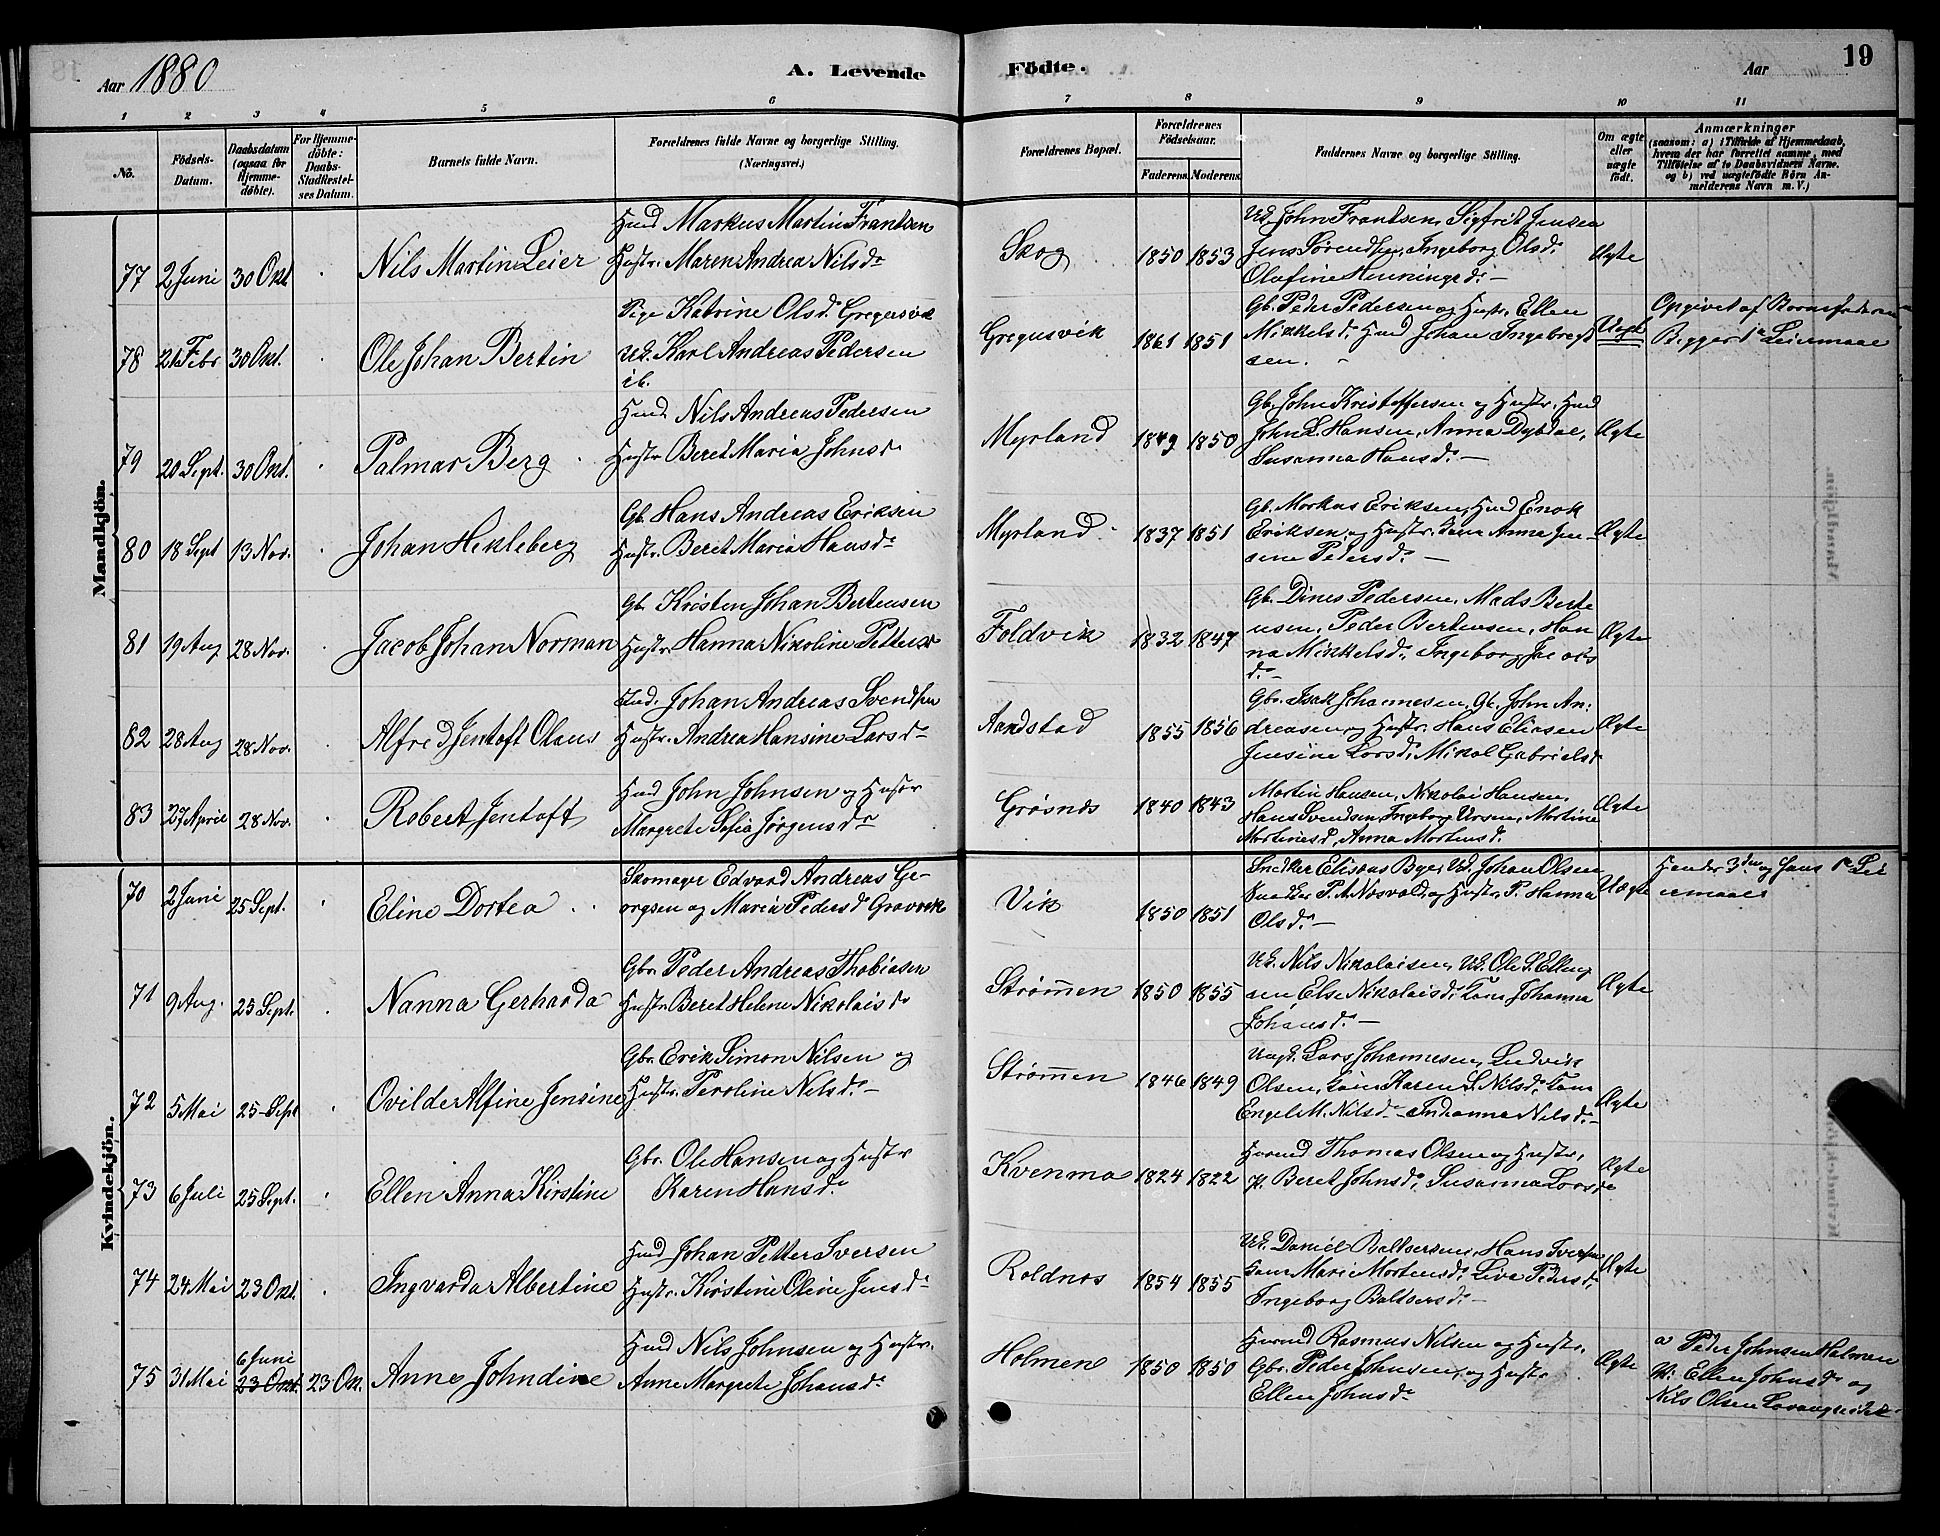 Aar 1880
A. Levende
Födte.
Aar
19
1 2 3 4 5 6 7 8 9 10 11
No.
Födsels-
Datum.
Daabsdatum
(ogsaa for
Hjemme-
döbte).
For Hjemme-
döbte:
Daabs-
Stadfæstel-
ses Datum.
Barnets fulde Navn.
Forældrenes fulde Navne og borgerlige Stilling.
(Næringsvei.)
Forældrenes Bopæl.
Forældrenes
Födselsaar.
Faderens. Moderens.
Faddernes Navne og borgerlige Stilling.
Om ægte
eller
uægte
födt.
Anmærkninger
(saasom: a) i Tilfælde af Hjemmedaab,
hvem der har forrettet samme, med
Tilföielse af to Daabsvidners Navne,
og b) ved uægtefödte Börn An-
melderens Navn m. V.)
Mandkjön.
77 2 Juni 30 Okt. Nils Martin Leier
Hmd Markus Martin Frantsen
Hustr. Maren Andrea Nilsdr
Skog 1850 1853
Ud. John Frantsen, Sigfrit Jensen
Jens Sørendsen, Ingeborg Olsdr
Olufine Henningsdr
Ægte
78 21 Febr 30 Okt. Ole Johan Bertin
Pige Katrine Olsdr Gregusvik
Ud. Karl Andreas Pedersen
ib.
Gregusvik 1861 1851
Gb. Peder Pedersen og Hustr. Ellen
Mikkelsdr, Hmd Johan Ingebrigt
sen.
Uægte
Opgivet af Barnefaderen
Begges 1ste Leiermaal
79 20 Sept. 30 Okt. Palmar Berg
Hmd. Nils Andreas Pedersen
Hustr. Beret Maria Johnsdr
Myrland 1849 1850
Gb. John Kristoffersen og Hustr. Hmd
John L. Hansen, Anna Dybdal,
Susanna Hansdr
Ægte
80 18 Sept 13 Nov. Johan Hekleberg
Gb. Hans Andreas Eriksen
Hustr. Beret Maria Hansdr
Myrland 1837 1851
Gb. Markus Eriksen, Hmd Enok
Eriksen og Hustr. Anna Jen-
sine Pedersdr
Ægte
81 19 Aug 28 Nov. Jacob Johan Norman
Gb. Kristen Johan Bertensen
Hustr. Hanna Nikoline Pettersdr
Foldvik 1832 1847
Gb. Dines Pedersen, Mads Berte
nsen, Peder Bertensen, Han
na Mikkelsdr, Ingeborg Jacobs
dr
Ægte
82 28 Aug 28 Nov. Alfred Jentoft Olaus
Hmd. Johan Andreas Svendsen
Hustr. Andrea Hansine Larsdr
Aandstad 1855 1856
Gbr. Isak Johannesen, Gb. John An-
dreasen og Hustr. Hans Eliasen
Jensine Larsdr, Mikal Gabrielsdr
Ægte
83 27 April 28 Nov. Robert Jentoft
Hmd John Johnsen og Hustr
Margrete Sofia Jørgensdr
Grøsnes 1840 1843
Martin Hansen, Nikolai Hansen,
Hans Svendsen, Ingeborg Ursen, Martine
Martinesdr, Anna Mortensdr
Ægte
Kvindekjön.
70 2 Juni 25 Sept. Eline Dortea
Skomager Edvard Andreas Ge-
orgsen og Maria Pedersdr Gravvik
Vik 1850 1851
Snedker Elisæus Bye, Ud. Johan Olsen
P. A. Nosvold og Hustr. P. Hanna
Olsdr
Uægte
Hendes 3die og hans 1ste Lei
ermaal
71 9 Aug. 25 Sept. Nanna Gerharda
Gbr. Peder Andreas Thobiasen
Hustr. Beret Helene Nikolaisdr
Strømen 1850 1855
Ud. Nils Nikolaisen, Ud. Ole S. Elling
sen, Else Nikolaisdr, Johanna
Johansdr
Ægte
72 5 Mai 25 Sept Ovilde Alfine Jensine
Gbr. Erik Simon Nilsen og
Hustr. Peroline Nilsdr
Strømen 1846 1849
Ungk. Lars Johannesen, Ludvik
Olsen, Karen S. Nilsdr,
Engel M. Nilsdr, Indianna Nilsdr
Ægte
73 6 Juli 25 Sept. Ellen Anna Kirstine
Gbr. Ole Hansen og Hustr
Karen Hansdr
Kvenmo 1824 1822
Husmd Thomas Olsen og Hustr,
K. Beret Johnsdr, Susanna Larsdr
Ægte
74 24 Mai 23 Okt. Ingvarda Albertine
Hmd Johan Petter Iversen
Hustr. Kirstine Oline Jensdr
Roldnes 1854 1855
Ud. Daniel Baltsersen, Hans Iversen
Marie Mortensdr, Liva Pedersdr,
Ingeborg Baltsersdr
Ægte
75 31 Mai 6 Juni 23 Okt. 23 Ok. Anne Johndine
Hmd Nils Johnsen og Hustr.
Anne Margrete Johansdr
Holmen 1850 1850
Husmd Rasmus Nilsen og Hustr.
Gbr. Peder Johnsen og Hustr
Ellen Johnsdr
Ægte
a Peder Johnsen Holmen
Ellen Johnsdr og
Nils Olsen Lavangseidet